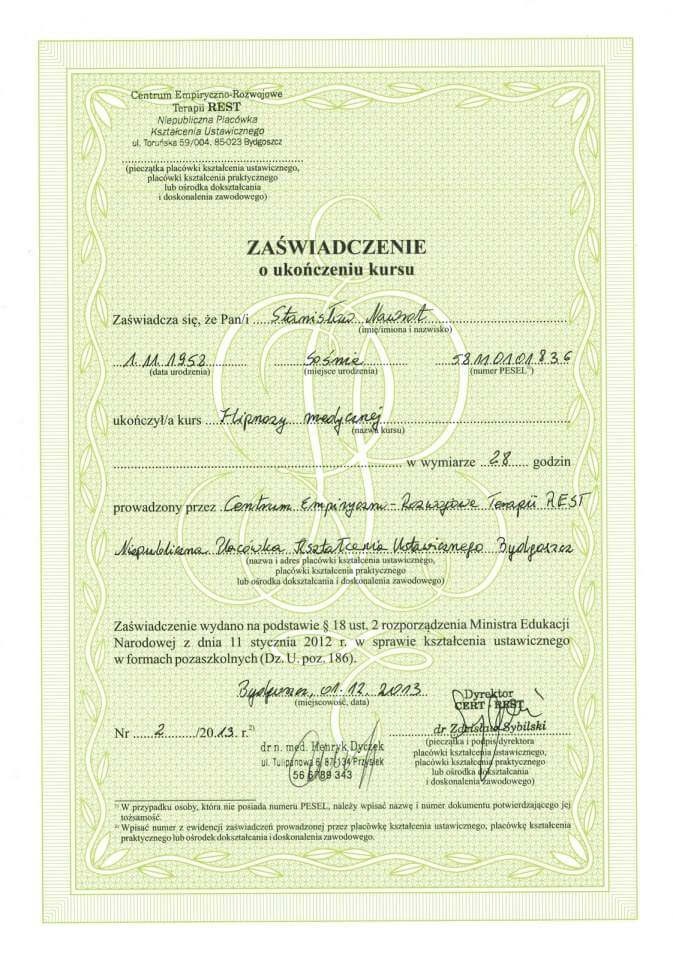 Centrum Empiryczno-Rozwojowe
Terapii REST
Niepubliczna Placówka
Kształcenia Ustawicznego
ul. Toruńska 59/004, 85-023 Bydgoszcz
(pieczątka placówki kształcenia ustawicznego,
placówki kształcenia praktycznego
lub ośrodka dokształcania
i doskonalenia zawodowego)
ZAŚWIADCZENIE
o ukończeniu kursu
Zaświadcza się, że Pan/i Stanisław Nawrot
(imię/imiona i nazwisko)
1.11.1958 Sośnie 58110101836
(data urodzenia) (miejsce urodzenia) (numer PESEL¹⁾)
ukończył/a kurs Hipnozy medycznej
(nazwa kursu)
w wymiarze 28 godzin
prowadzony przez Centrum Empiryczno-Rozwojowe Terapii REST
Niepubliczna Placówka Kształcenia Ustawicznego Bydgoszcz
(nazwa i adres placówki kształcenia ustawicznego,
placówki kształcenia praktycznego
lub ośrodka dokształcania i doskonalenia zawodowego)
Zaświadczenie wydano na podstawie § 18 ust. 2 rozporządzenia Ministra Edukacji
Narodowej z dnia 11 stycznia 2012 r. w sprawie kształcenia ustawicznego
w formach pozaszkolnych (Dz. U. poz. 186).
Bydgoszcz, 01.12.2013
(miejscowość, data)
Nr 2 /2013. r.²⁾
Dyrektor
CERT - REST
dr Zdzisław Sybilski
(pieczątka i podpis dyrektora
placówki kształcenia ustawicznego,
placówki kształcenia praktycznego
lub ośrodka dokształcania
i doskonalenia zawodowego)
dr n. med. Henryk Dyczek
ul. Tulipanowa 6, 87-134 Przysiek
56 6789 343
¹⁾ W przypadku osoby, która nie posiada numeru PESEL, należy wpisać nazwę i numer dokumentu potwierdzającego jej
tożsamość.
²⁾ Wpisać numer z ewidencji zaświadczeń prowadzonej przez placówkę kształcenia ustawicznego, placówkę kształcenia
praktycznego lub ośrodek dokształcania i doskonalenia zawodowego.